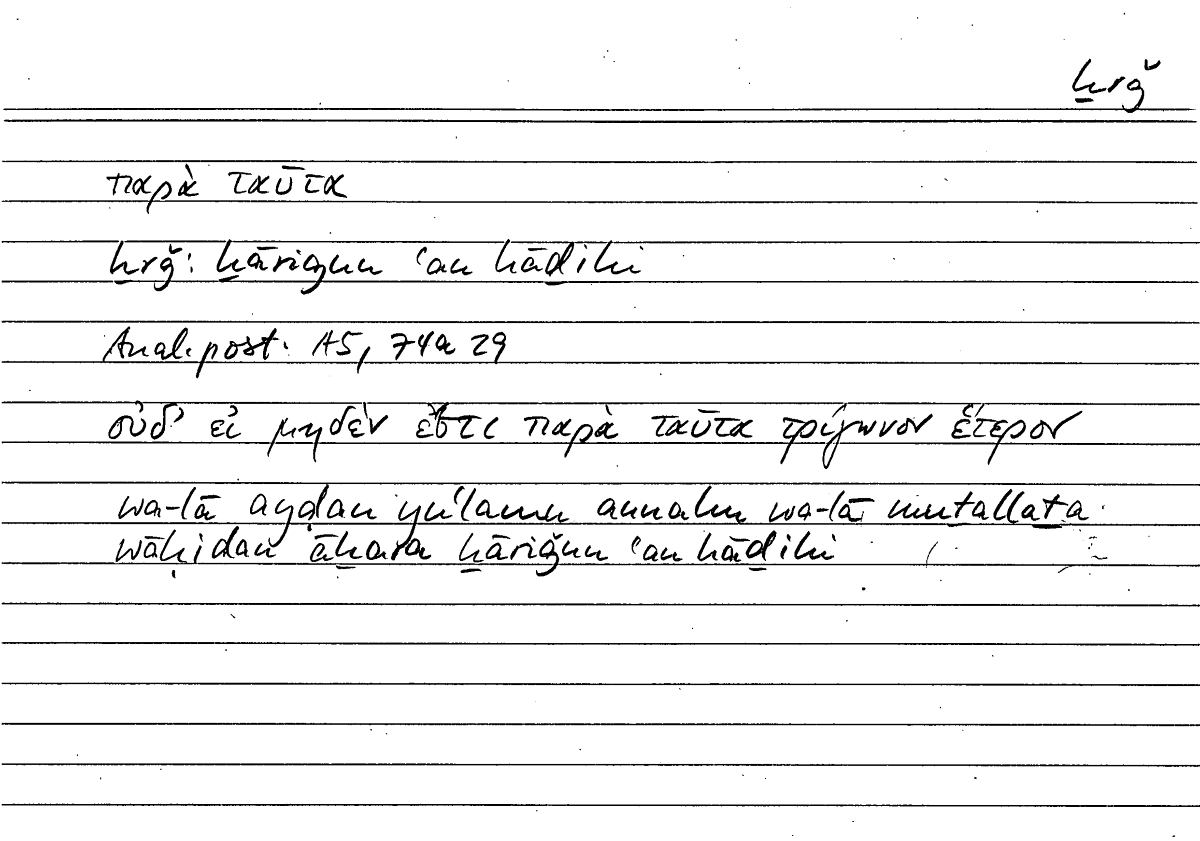 ẖrǧ
παρὰ ταῦτα
ẖrǧ: ẖāriǧun ʿan hāḏihi
Anal. post. A5, 74a 29
οὐδ’ εἰ μηδὲν ἔστι παρὰ ταῦτα τρίγωνον ἕτερον
wa-lā ayḍan yuʿlamu annahu wa-lā muṯallaṯa
wāḥidan āẖara ẖāriǧun ʿan hāḏihi